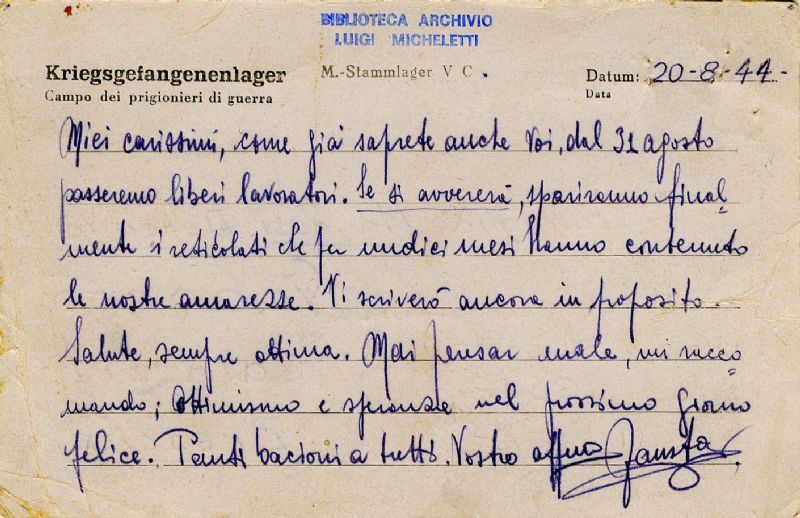 BIBLIOTECA ARCHIVIO
LUIGI MICHELETTI
Kriegsgefangenenlager
Campo dei prigionieri di guerra
M.-Stammlager V C.
Datum: 20-8-44-
Data
Miei carissimi, come già saprete anche Voi, dal 31 agosto
passeremo liberi lavoratori. Se si avvererà, spariranno final=
mente i reticolati che per undici mesi hanno contenuto
le nostre amarezze. Vi scriverò ancora in proposito.
Salute, sempre ottima. Mai pensar male, mi racco=
mando; Ottimismo e speranza nel prossimo giorno
felice. Tanti bacioni a tutti. Vostro affmo Fausto.